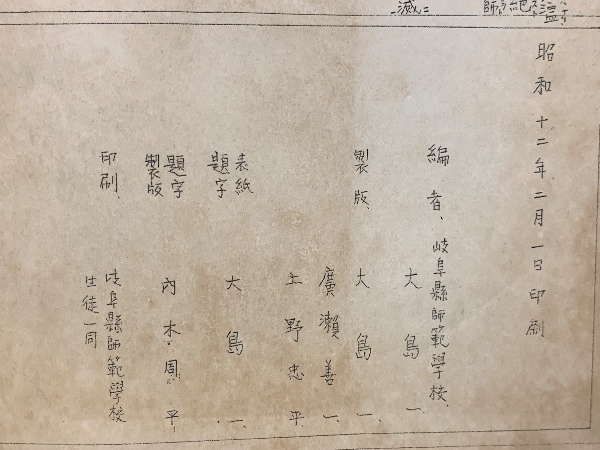 昭和十二年二月一日印刷
編者、岐阜縣師範學校、
大島一
製版、大島一
廣瀬善一
上野忠平
表紙
題字 大島一
題字
製版 内木周平
印刷、岐阜縣師範學校
生徒一同